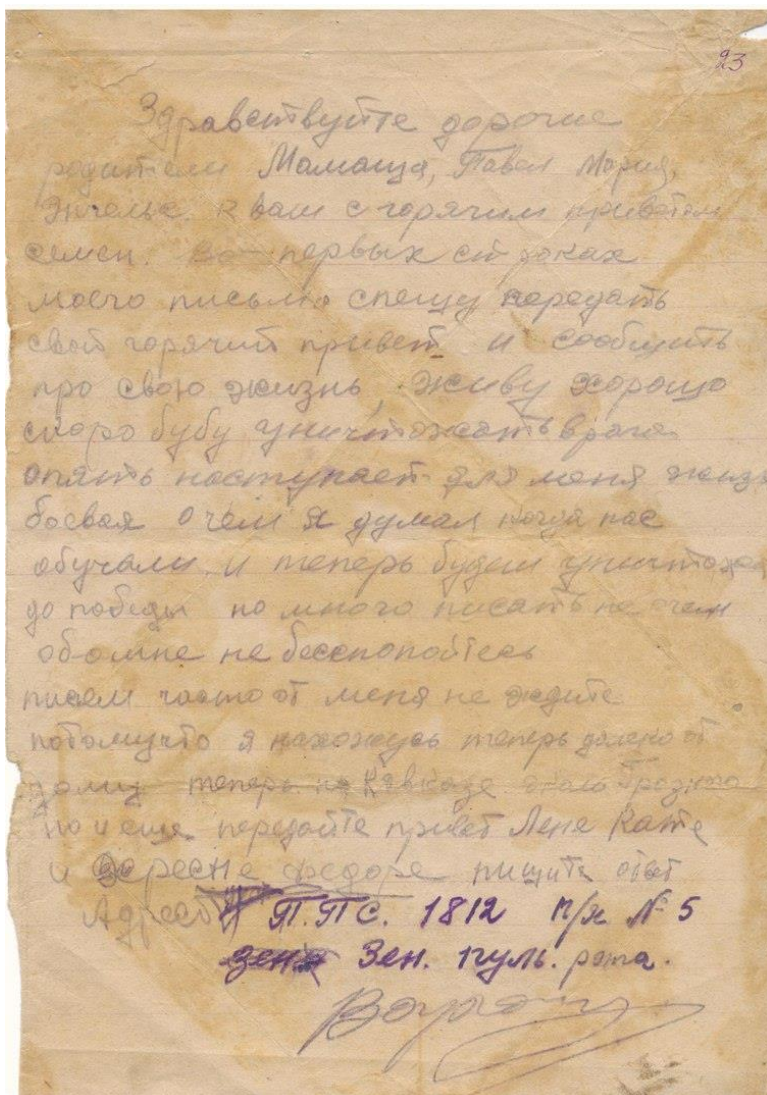 23
Здравствуйте дорогие
родители Мамаша, Павел Мария,
Энгельс. к вам с горячим приветом
семен. Во первых строках
моего письма спешу передать
свой горячий привет и сообщить
про свою жизнь, живу хорошо
скоро бубу уничтожать врага
опять наступает для меня жизн
боевая о чем я думал когда нас
обучали. и теперь будем уничтожа
до победы но много писать не очем
обомне не бесспопойтесь
писем часто от меня не ждите
потомучто я нахожусь теперь далеко от
дому теперь на Кавказе около Грозного
но и еще передайте привет Лене Кате
и федоре пишите ответ
Адрес П.П.С. 1812 п/я № 5
Зен. пуль. рота.